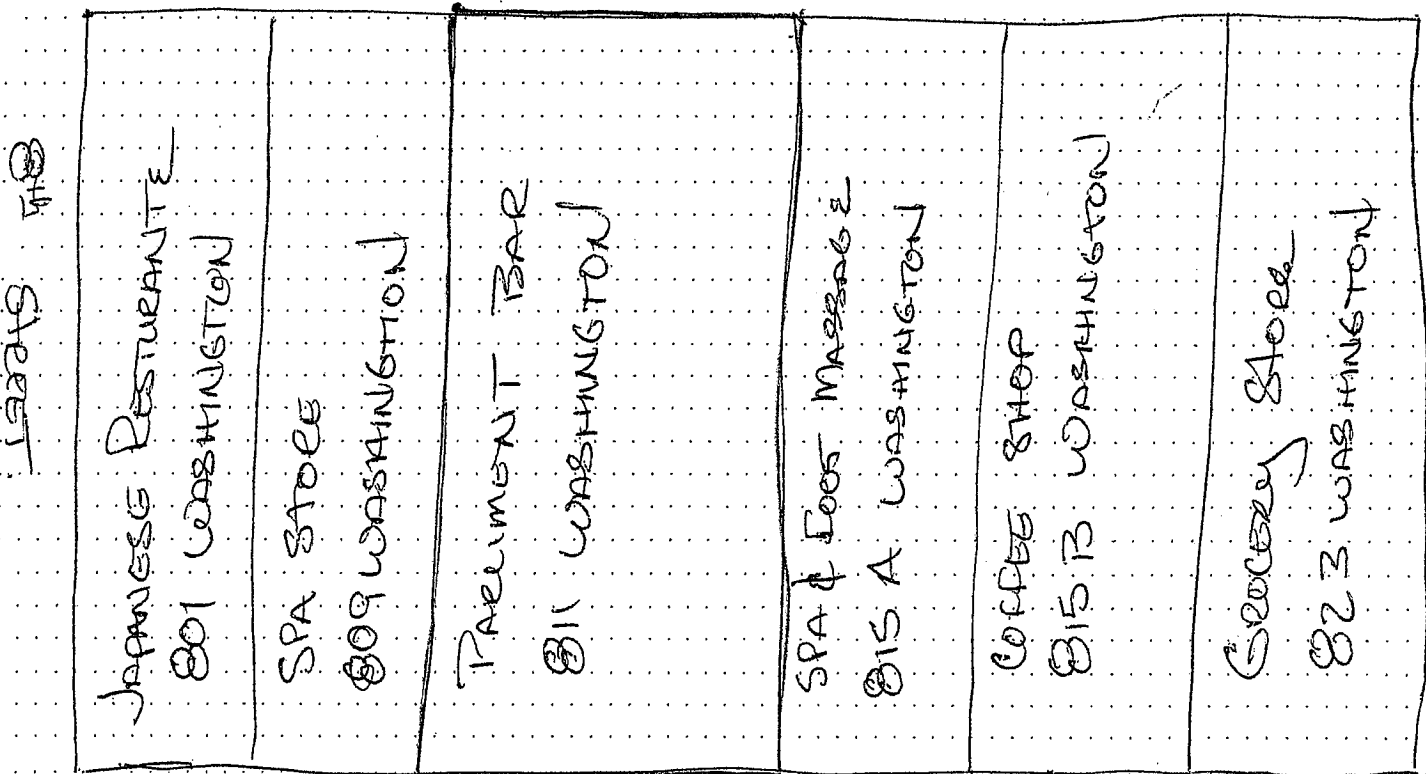 8th STREET
JAPANESE RESTURANTE
801 WASHINGTON
SPA STORE
809 WASHINGTON
PARLIMENT BAR
811 WASHINGTON
SPA & FOOT MASSAGE
815 A WASHINGTON
COFFEE SHOP
815 B WASHINGTON
GROCERY STORE
823 WASHINGTON